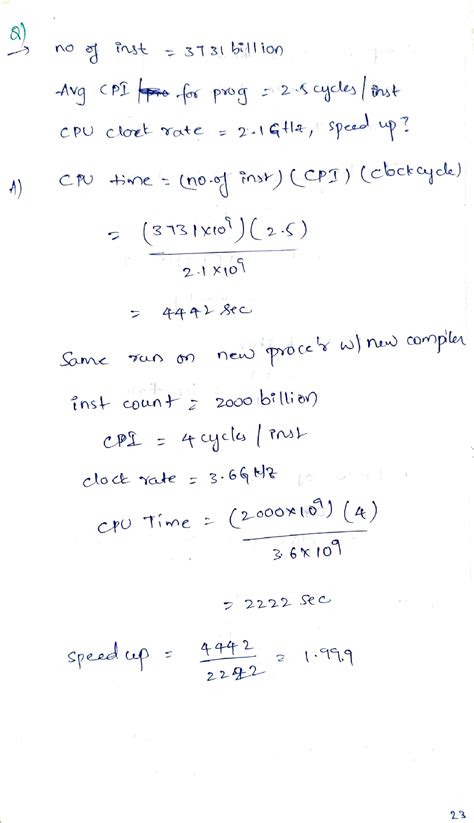 Q)
no of inst = 3731 billion
Avg CPI for prog = 2.5 cycles/inst
CPU clock rate = 2.1 GHz, speed up?
A) CPU time = (no. of inst) (CPI) (clock cycle)
= (3731x10⁹)(2.5)
2.1 x10⁹
= 4442 sec
Same run on new proce'r w/ new compiler
inst count = 2000 billion
CPI = 4 cycles / inst
clock rate = 3.6 GHz
CPU Time = (2000x10⁹) (4)
3.6 x 10⁹
= 2222 sec
speed up = 4442 = 1.999
2222
23